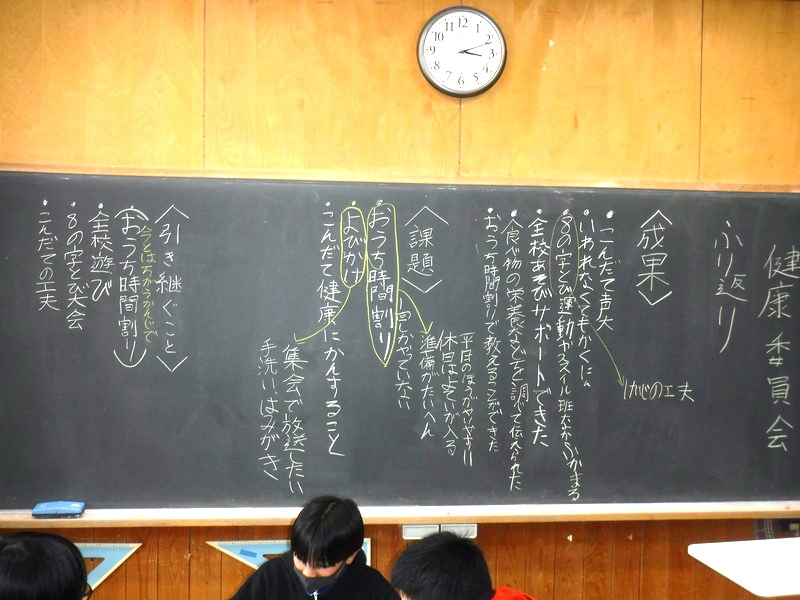 健康委員会
ふり返り
〈成果〉
・こんだて声矢
・いわれなくてもかくにん
・8の字とび運動やスマイル班なかふかまる
・全校あそびサポートできた
・食べ物の栄養などを調べて伝えられた
・おうち時間割りで教えることができた
〈課題〉
・おうち時間割り
一回しかやっていない
準備がたいへん
休日はよていが入る
平日のほうがやりやすい
・よびかけ
・こんだて健康にかんすること
集会で放送したい
手洗い、はみがき
〈引き継ぐこと〉
今とはちがうかんじで
・(おうち時間割り)
・全校遊び
・8の字とび大会
・こんだての工夫
12
1
2
3
4
5
6
7
8
9
10
11